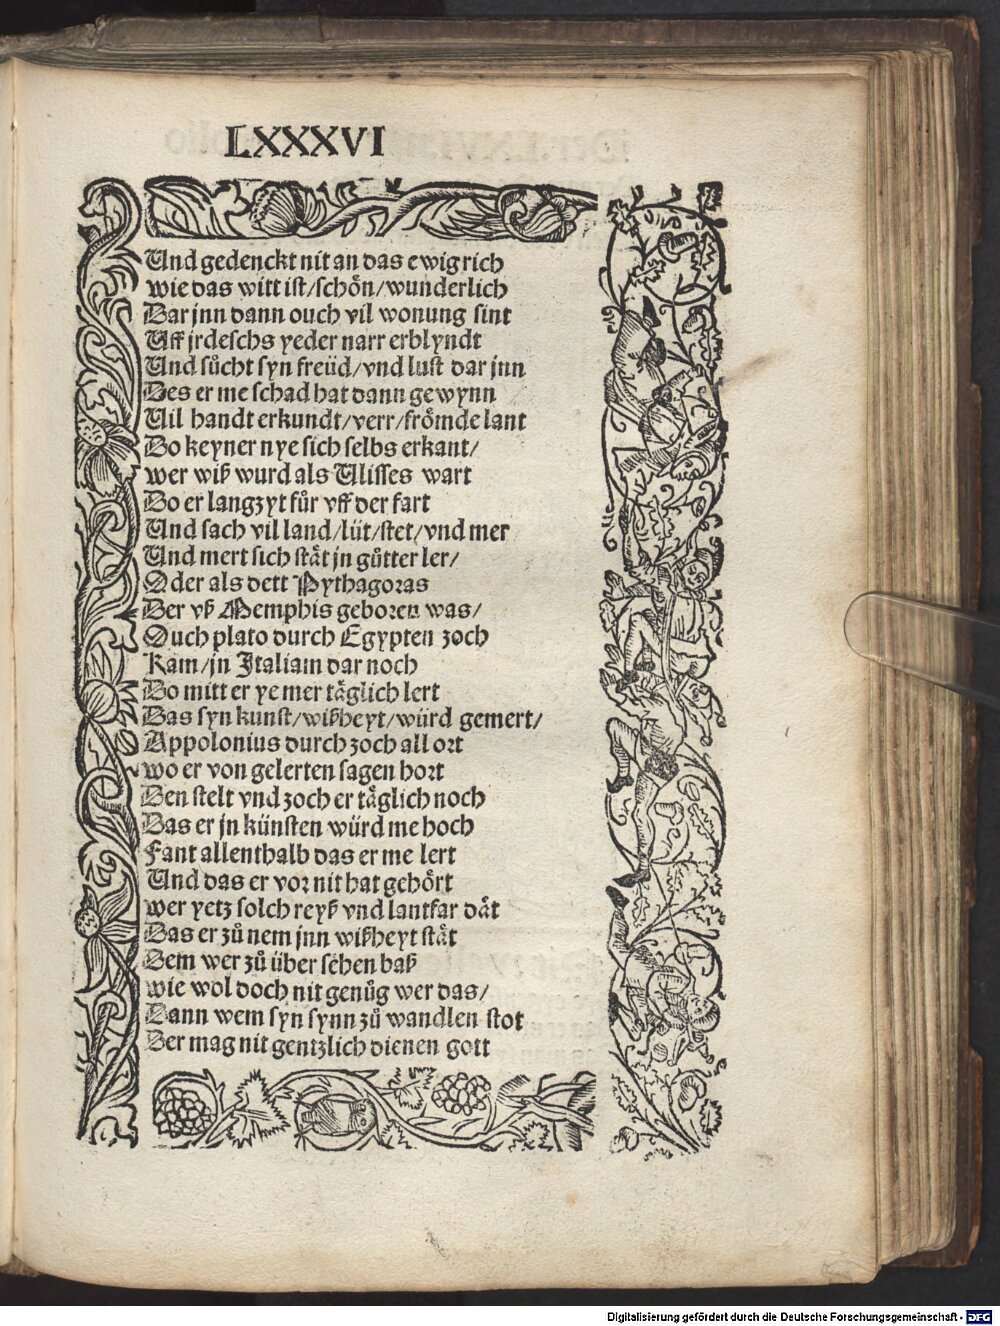 LXXXVI
Und gedenckt nit an das ewig rich
wie das witt ist/schoͤn/wunderlich
Dar jnn dann ouch vil wonung sint
Uff jrdeschs yeder narr erblyndt
Und suͦcht syn freüd/vnd lust dar jnn
Des er me schad hat dann gewynn
Uil handt erkundt/verr/froͤmde lant
Do keyner nye sich selbs erkant/
wer wiß wurd als Ulisses wart
Do er lang zyt fuͦr vff der fart
Und sach vil land/lüt/stet/vnd mer
Und mert sich staͤt jn guͦtter ler/
Oder als dett Pythagoras
Der vß Memphis geboren was/
Ouch plato durch Egypten zoch
Kam/jn Italiam dar noch
Do mitt er ye mer taͤglich lert
Das syn kunst/wißheyt/würd gemert/
Appolonius durch zoch all ort
wo er von gelerten sagen hort
Den stelt vnd zoch er taͤglich noch
Das er jn künsten würd me hoch
Fant allenthalb das er me lert
Und das er vor nit hat gehoͤrt
wer yetz solch reyß vnd lantfar daͤt
Das er zuͦ nem jnn wißheyt staͤt
Dem wer zuͦ über sehen baß
wie wol doch nit genuͦg wer das/
Dann wem syn synn zuͦ wandlen stot
Der mag nit gentzlich dienen gott
Digitalisierung gefördert durch die Deutsche Forschungsgemeinschaft - DFG